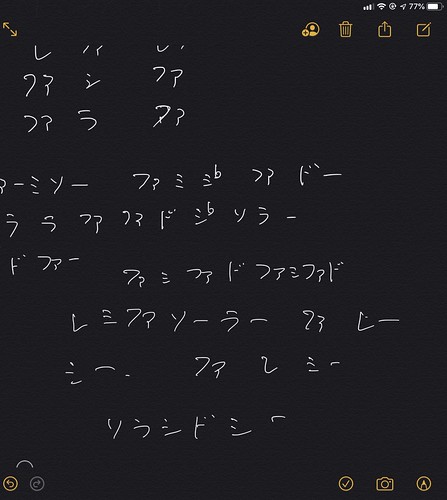 77%
ファ シ ファ
ファ ラ ファ
ーミソー ファ ミ ミb ファ ドー
ラ ラ ファ ファ ド ミb ソ ラー
ド ファー
ファ ミ ファ ド ファミファド
レ ミ ファ ソー ラー ファ レー
ミー. ファ レ ミー
ソ ラ シ ド シー